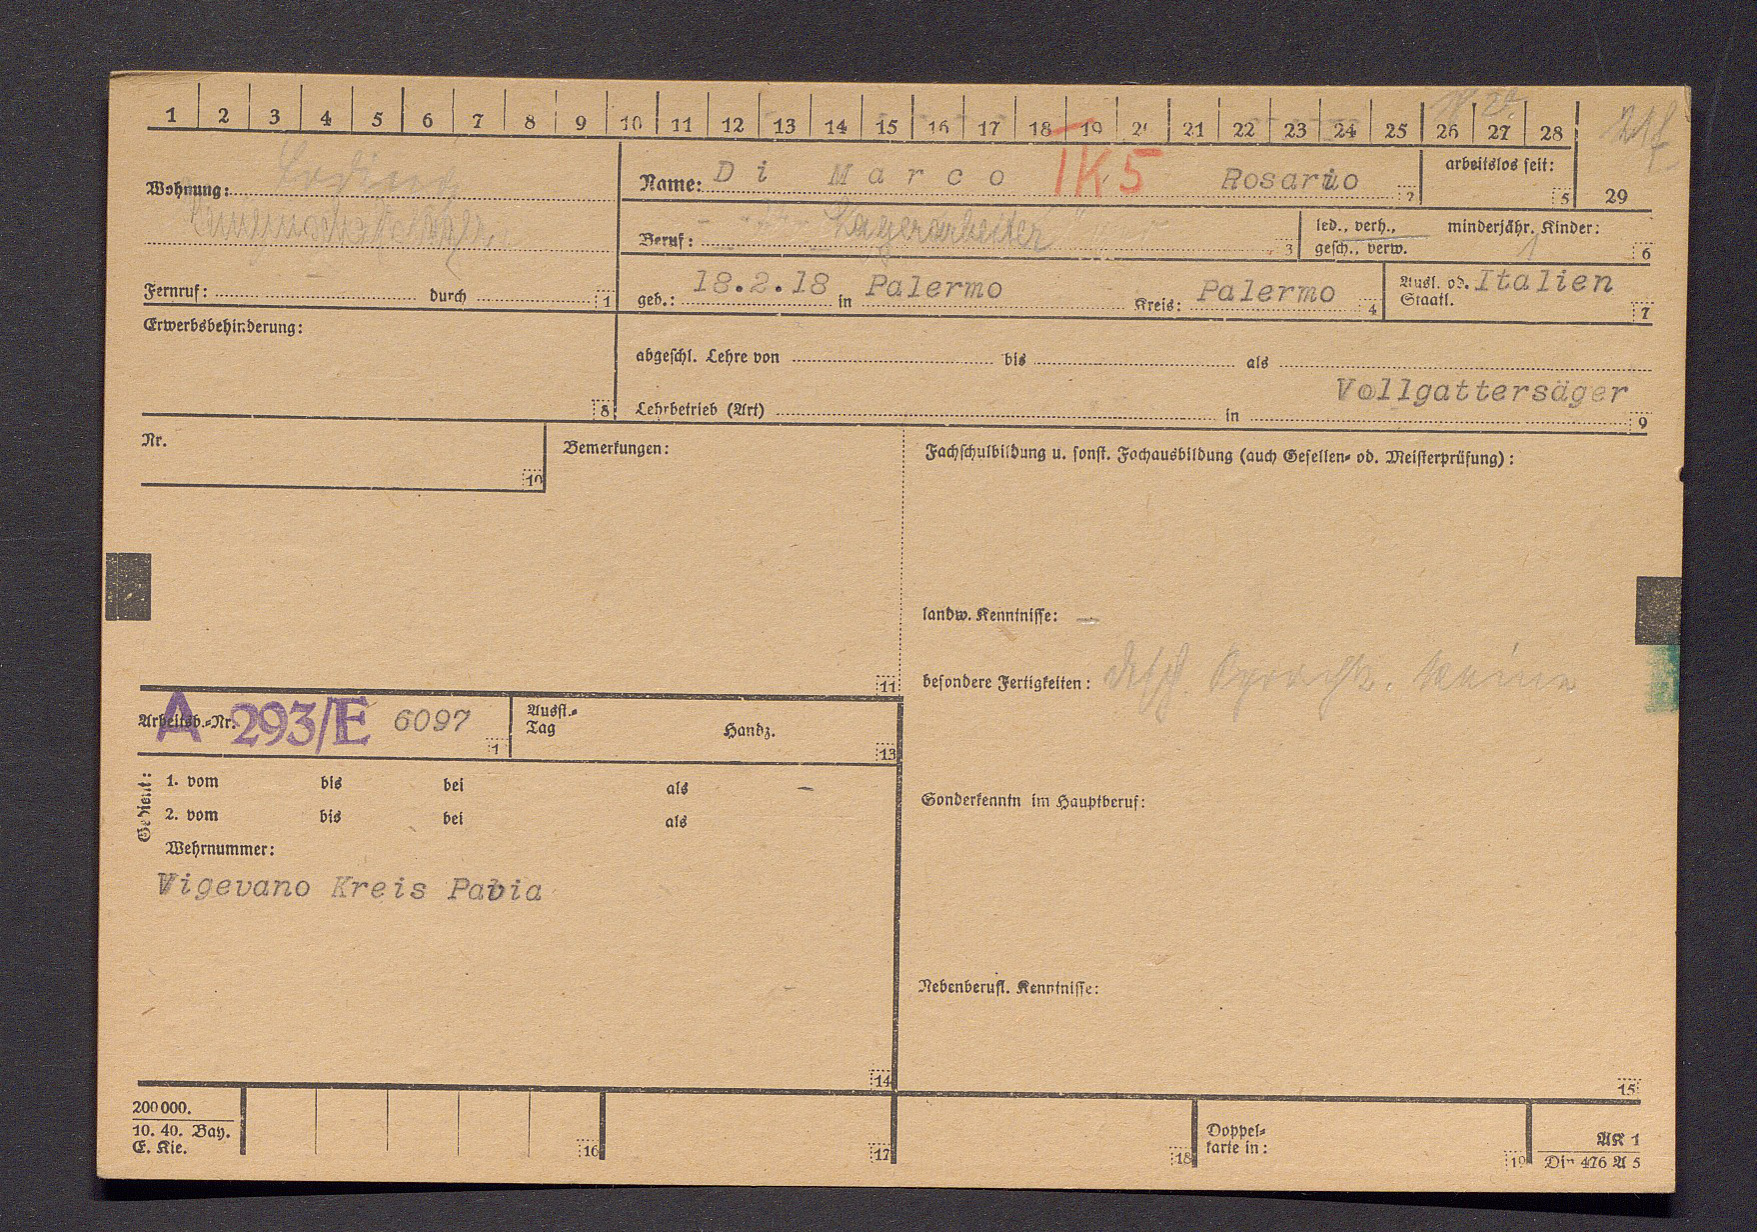 1 2 3 4 5 6 7 8 9 10 11 12 13 14 15 16 17 18 19 20 21 22 23 24 25 26 27 28
Wohnung:
Name: Di Marco IK5 Rosario 2
arbeitslos seit: 5
29
Beruf: Lagerarbeiter 3
led., verh., gesch., verw.
minderjähr. Kinder: 1 6
Fernruf: durch 1
geb.: 18.2.18 in Palermo Kreis: Palermo 4
Ausl. od. Staatl. Italien 7
Erwerbsbehinderung: 8
abgeschl. Lehre von bis als
Vollgattersäger
Lehrbetrieb (Art) in 9
Nr. 10
Bemerkungen: 11
Fachschulbildung u. sonst. Fachausbildung (auch Gesellen- od. Meisterprüfung):
landw. Kenntnisse: —
besondere Fertigkeiten: dtsch. Sprachk. keine
Arbeitsb.-Nr. A 293/E 6097 1
Ausst.-Tag Handz. 13
Gedient:
1. vom bis bei als —
2. vom bis bei als
Wehrnummer:
Vigevano Kreis Pavia
14
Sonderkenntn im Hauptberuf:
Nebenberufl. Kenntnisse:
15
200000.
10. 40. Bay.
E. Kie.
16
17
18
Doppel-
karte in:
19
AK 1
Din 476 A 5